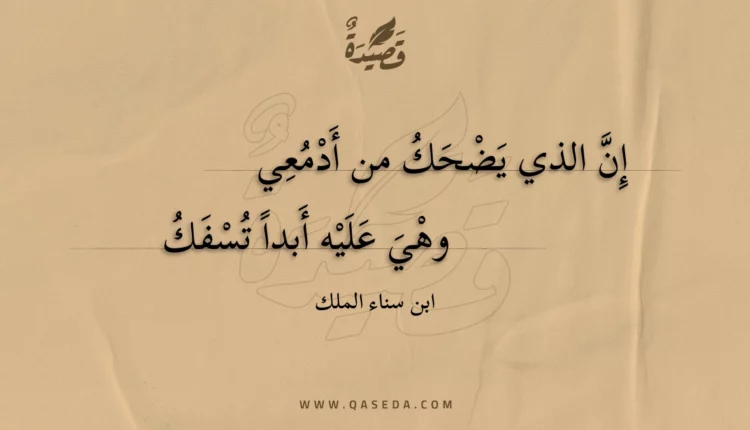 قَصِيدَةٌ
إِنَّ الذي يَضْحَكُ من أَدْمُعِي
وهْيَ عَلَيْه أَبداً تُسْفَكُ
ابن سناء الملك
WWW.QASEDA.COM